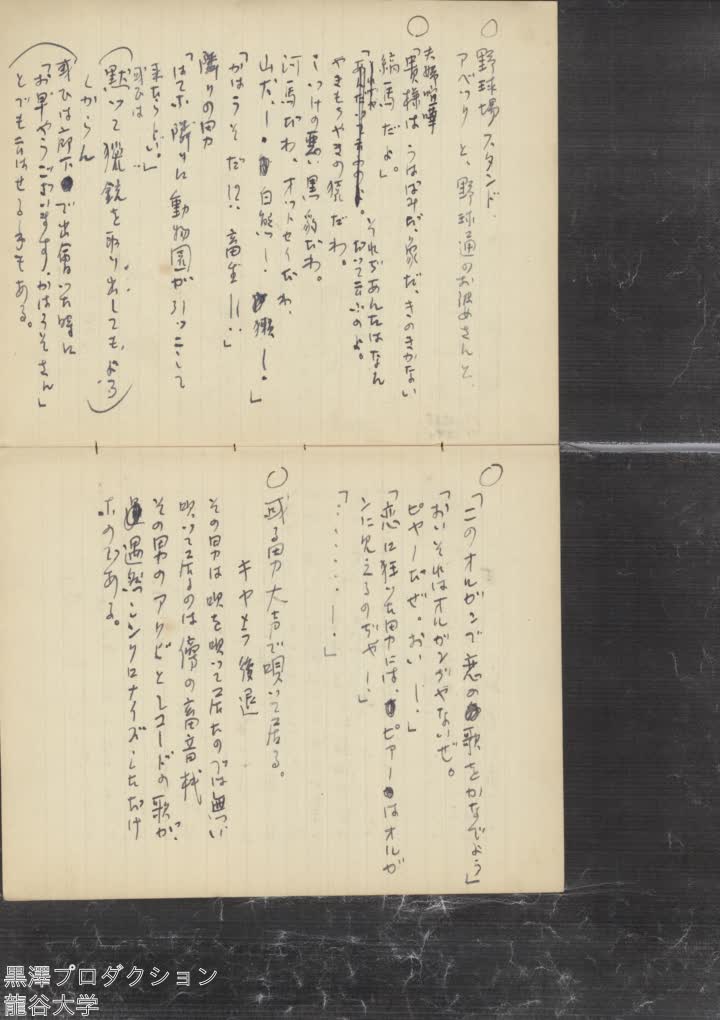 ○ 野球場スタンド、
アベック と、野球通のお婆さんと、
○
夫婦喧嘩
「貴様は うはばみだ、象だ、きのきかない
縞馬 だよ。」
それぢあんたはなん
だつて云ふのよ。
やきもちやきの猿だわ。
しつけの悪い黒豹だわ。
河馬だわ、オットセイだわ、
山だ!・白熊ッ!・獺!・」
「かはうそだ!?‥畜生!!‥」
隣りの男
「はてホ 隣りに動物園が引ッこして
来たらしい。」
或ひは
(黙つて猟銃を取り出しても、よろ
しからん)
(或ひは廊下で出會つた時に
「お早やうございます、かはうそさん」
とでも云はせる手もある。
○
「このオルガンで恋の歌をかなでよう」
「おい それはオルガンぢやないぜ。
ピヤーだぜ。おい!・」
「恋に狂つた男には、ピアーはオルガ
ンに見えるのぢや!・」
「‥‥‥!・」
○ 或る男 大声で唄いて居る。
キヤメラ後退
その男は唄を唄つて居たのでは無い
唄いて居るのは傍の蓄音機
その男のアクビとレコードの歌が、
偶然シンクロナイズしただけ
ホのである。
黒澤プロダクション
龍谷大学